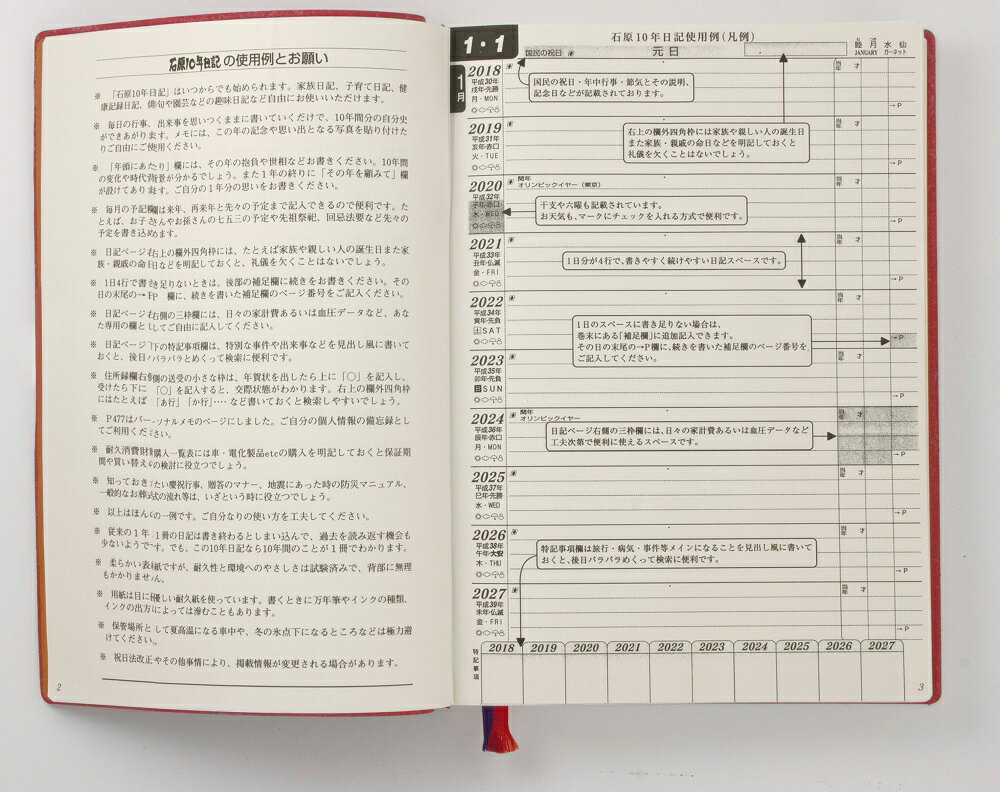 石原10年日記の使用例とお願い
※ 「石原10年日記」はいつからでも始められます。家族日記、子育て日記、健
康記録日記、俳句や園芸などの趣味日記など自由にお使いいただけます。
※ 毎日の行事、出来事を思いつくままに書いていくだけで、10年間分の自分史
ができあがります。メモには、この年の記念や思い出となる写真を貼り付けた
りご自由にご使用ください。
※ 「年頭にあたり」欄には、その年の抱負や世相などお書きください。10年間
の変化や時代背景が分かるでしょう。また1年の終りに「その年を顧みて」欄
が設けてあります。ご自分の1年分の思いをお書きください。
※ 毎月の予記欄は来年、再来年と先々の予定まで記入できるので便利です。た
とえば、お子さんやお孫さんの七五三の予定や先祖祭祀、回忌法要など先々の
予定を書き込めます。
※ 日記ページ右上の欄外四角枠には、たとえば家族や親しい人の誕生日また家
族・親戚の命日などを明記しておくと、礼儀を欠くことはないでしょう。
※ 1日4行で書き足りないときは、後部の補足欄に続きをお書きください。その
日の末尾の→P 欄に、続きを書いた補足欄のページ番号をご記入ください。
※ 日記ページ右側の三枠欄には、日々の家計費あるいは血圧データなど、あな
た専用の欄としてご自由に記入してください。
※ 日記ページ下の特記事項欄は、特別な事件や出来事などを見出し風に書いて
おくと、後日パラパラとめくって検索に便利です。
※ 住所録欄右側の送受の小さな枠は、年賀状を出したら上に「○」を記入し、
受けたら下に「○」を記入すると、交際状態がわかります。右上の欄外四角枠
にはたとえば「あ行」「か行」‥‥など書いておくと検索しやすいでしょう。
※ P477はパーソナルメモのページにしました。ご自分の個人情報の備忘録とし
てご利用ください。
※ 耐久消費財購入一覧表には車・電化製品etcの購入を明記しておくと保証期
間や買い替えの検討に役立つでしょう。
※ 知っておきたい慶祝行事、贈答のマナー、地震にあった時の防災マニュアル、
一般的なお葬式の流れ等は、いざという時に役立つでしょう。
※ 以上はほんの一例です。ご自分なりの使い方を工夫してください。
※ 従来の1年1冊の日記は書き終わるとしまい込んで、過去を読み返す機会も
少ないようです。でも、この10年日記なら10年間のことが1冊でわかります。
※ 柔らかい表紙ですが、耐久性と環境へのやさしさは試験済みで、背部に無理
もかかりません。
※ 用紙は目に優しい耐久紙を使っています。書くときに万年筆やインクの種類、
インクの出方によっては滲むこともあります。
※ 保管場所として夏高温になる車中や、冬の氷点下になるところなどは極力避
けてください。
※ 祝日法改正やその他事情により、掲載情報が変更される場合があります。
2
石原10年日記使用例(凡例)
1・1
国民の祝日
元日
睦月 水仙
JANUARY ガーネット
1月
2018
平成30年
戌年・先勝
月・MON
国民の祝日・年中行事・節気とその説明、
記念日などが記載されております。
当年 才
→P
2019
平成31年
亥年・赤口
火・TUE
右上の欄外四角枠には家族や親しい人の誕生日
また家族・親戚の命日などを明記しておくと
礼儀を欠くことはないでしょう。
当年 才
→P
2020
平成32年
子年・赤口
水・WED
閏年
オリンピックイヤー(東京)
干支や六曜も記載されています。
お天気も、マークにチェックを入れる方式で便利です。
当年 才
→P
2021
平成33年
丑年・仏滅
金・FRI
1日分が4行で、書きやすく続けやすい日記スペースです。
当年 才
→P
2022
平成34年
寅年・先負
土SAT
1日のスペースに書き足りない場合は、
巻末にある「補足欄」に追加記入できます。
その日の末尾の→P欄に、続きを書いた補足欄のページ番号を
ご記入ください。
当年 才
→P
2023
平成35年
卯年・先負
日SUN
当年 才
→P
2024
平成36年
辰年・赤口
月・MON
閏年
オリンピックイヤー
日記ページ右側の三枠欄には、日々の家計費あるいは血圧データなど
工夫次第で便利に使えるスペースです。
当年 才
→P
2025
平成37年
巳年・先勝
水・WED
当年 才
→P
2026
平成38年
午年・大安
木・THU
特記事項欄は旅行・病気・事件等メインになることを見出し風に書いて
おくと、後日パラパラめくって検索に便利です。
当年 才
→P
2027
平成39年
未年・仏滅
金・FRI
当年 才
→P
特記事項
2018 2019 2020 2021 2022 2023 2024 2025 2026 2027
3